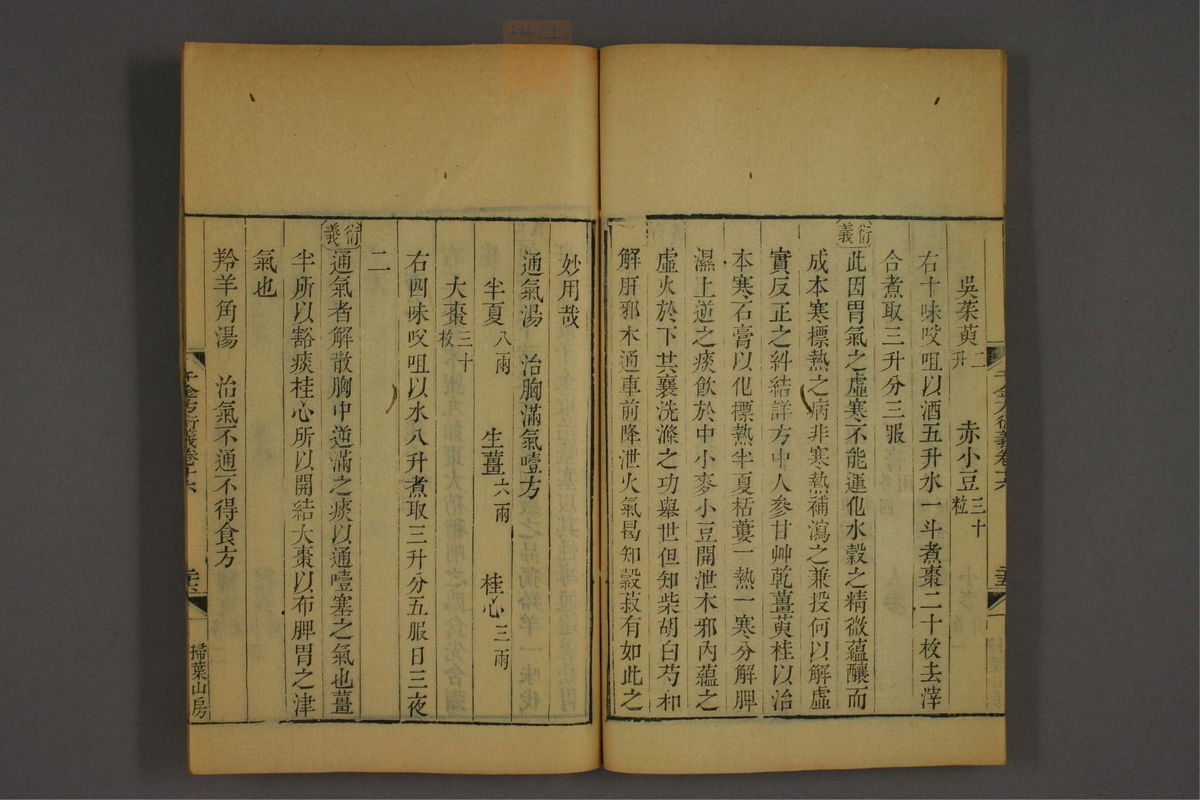 吳茱萸二升 赤小豆三十粒
右十味㕮咀以酒五升水一斗煮棗二十枚去滓
合煮取三升分三服
衍義
此因胃氣之虛寒不能運化水穀之精微蘊釀而
成本寒標熱之病非寒熱補瀉之兼投何以解虛
實反正之糾結詳方中人參甘艸乾薑萸桂以治
本寒石膏以化標熱半夏栝蔞一熱一寒分解脾
濕上逆之痰飲於中小麥小豆開泄木邪內蘊之
虛火於下共襄洗滌之功舉世但知柴胡白芍和
解肝邪木通車前降泄火氣曷知穀菽有如此之
妙用哉
通氣湯 治胸滿氣噎方
半夏八兩 生薑六兩 桂心三兩
大棗三十枚
右四味㕮咀以水八升煮取三升分五服日三夜
二
衍義
通氣者解散胸中逆滿之痰以通噎塞之氣也薑
半所以豁痰桂心所以開結大棗以布脾胃之津
氣也
羚羊角湯 治氣不通不得食方
千金方衍義卷十六
掃葉山房